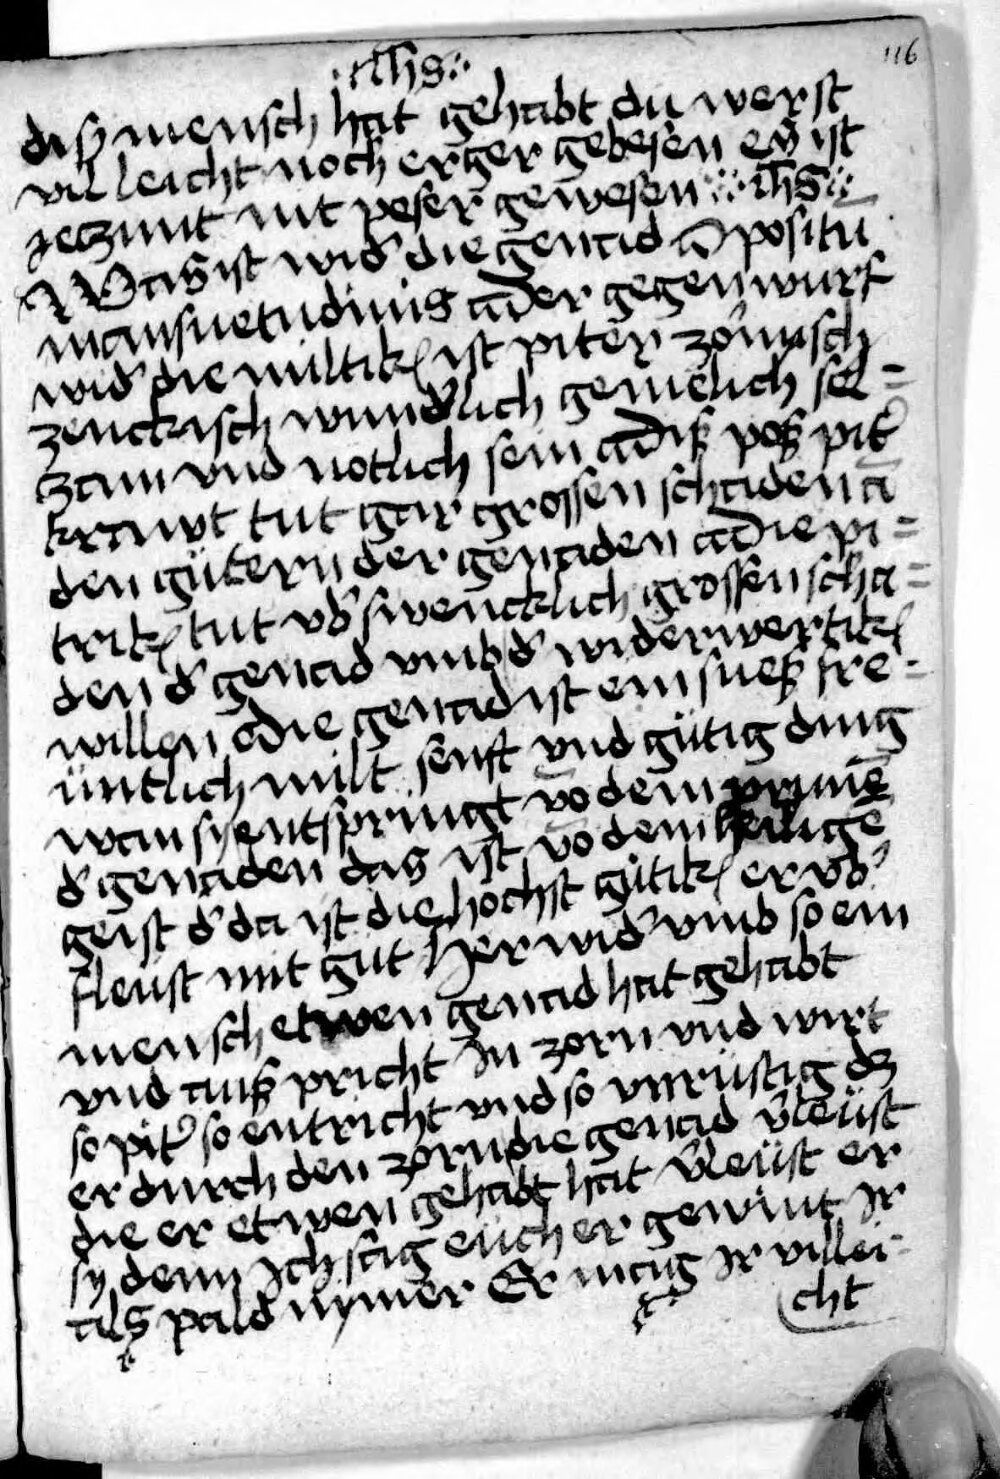 116
: ihs :
disz mensch hat gehabt du werst
villeicht noch erger gebesen er ist
jeczunt nit peser gewesen :: ihs ::
Was ist wid' die genad Appositū
mansuetudinis ader gegenwurf
wid' die miltik ist piter zornisch
zenckisch wund'lich gemelich sel=
zam vnd notlich sein a disz posz pit'
krawt tut gar grossen schaden ā
den gütern der genaden a die pi=
trik tut vb'swencklich grossen scha=
den d' genad vmb d' widerwertik
willen die genad ist ein suesz fre=
üntlich milt senft vnd gütig ding
wan sy entspringt vō dem prunē
d' genaden das ist vō dem heiligē
geist d' da ist die höchst gütik er vb'
fleust mit gut Herwid' vmb so ein
mensch etwen genad hat gehabt
vnd ausz pricht In zorn vnd wirt
so pit' so entricht vnd so vnrüstig dz
er durch den zorn die genad v'leüst
die er etwen gehabt hat v'leüst er
sy denn Ich sag eüch er gewint Ir
als pald nymer Er mag Ir villei-
cht